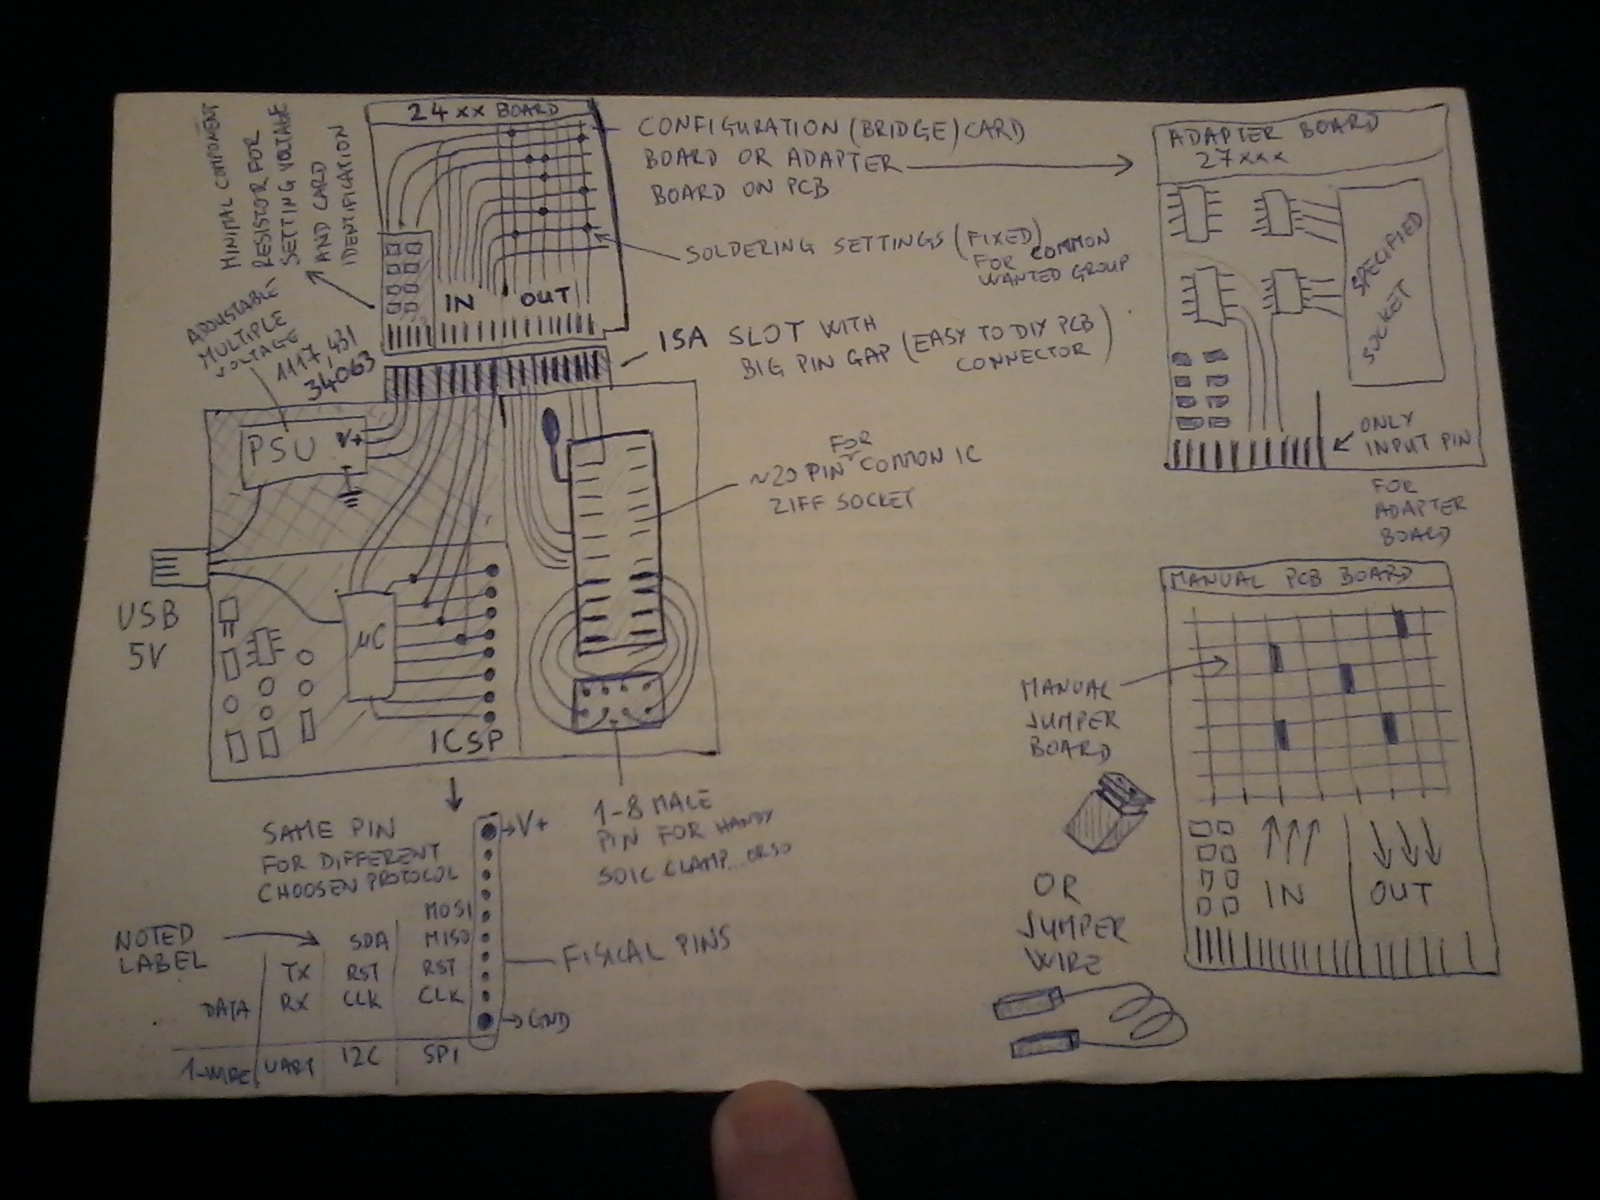 24xx BOARD
MINIMAL COMPONENT
RESISTOR FOR
SETTING VOLTAGE
AND CARD
IDENTIFICATION
CONFIGURATION (BRIDGE) CARD
BOARD OR ADAPTER
BOARD ON PCB
SOLDERING SETTINGS (FIXED)
FOR COMMON
WANTED GROUP
IN OUT
ADJUSTABLE
MULTIPLE
VOLTAGE
1117, 431
34063
ISA SLOT WITH
BIG PIN GAP (EASY TO DIY PCB
CONNECTOR)
PSU V+
FOR
~20 PIN COMMON IC
ZIFF SOCKET
USB
5V
µC
ICSP
1-8 MALE
PIN FOR HANDY
SOIC CLAMP... OR SO
SAME PIN
FOR DIFFERENT
CHOOSEN PROTOCOL
V+
MOSI
NOTED
LABEL
SDA MISO
TX RST RST
DATA RX CLK CLK
1-WIRE UART I2C SPI
FISICAL PINS
GND
ADAPTER BOARD
27xxx
SPECIFIED
SOCKET
ONLY
INPUT PIN
FOR
ADAPTER
BOARD
MANUAL PCB BOARD
MANUAL
JUMPER
BOARD
OR
JUMPER
WIRE
IN OUT